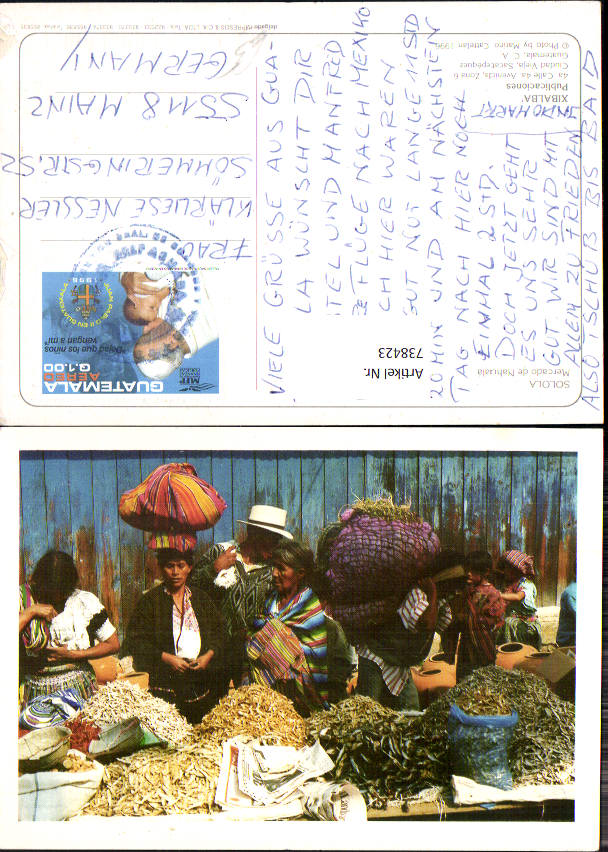 VIELE GRÜSSE AUS GUA-
LA WÜNSCHT DIR
ITEL UND MANFRED
FLÜGE NACH MEXIKO
CH HIER WAREN
GUT NUR LANGE 11 STD
20 MIN UND AM NÄCHSTEN
TAG NACH HIER NOCH
EINMAL 2 STD.
DOCH JETZT GEHT
ES UNS SEHR
GUT WIR SIND MIT
ALLEM ZU FRIEDEN
ALSO TSCHÜß BIS BALD
FRAU
KLÄRLIESE NESSLER
SÖMMERINGSTR. 52
55118 MAINZ
GERMANY
GUATEMALA
AEREO
Q1.00
"Dejad que los niños
vengan a mí"
JUAN PABLO II EN GUATEMALA
1996
SOLOLA
Mercado de Nahualá
XIBALBA'
Publicaciones
4a. Calle 4a. Avenida, Zona 6
Ciudad Vieja, Sacatepéquez
Guatemala, C. A.
© Photo by Marino Cattelan 1996
Artikel Nr.
738423